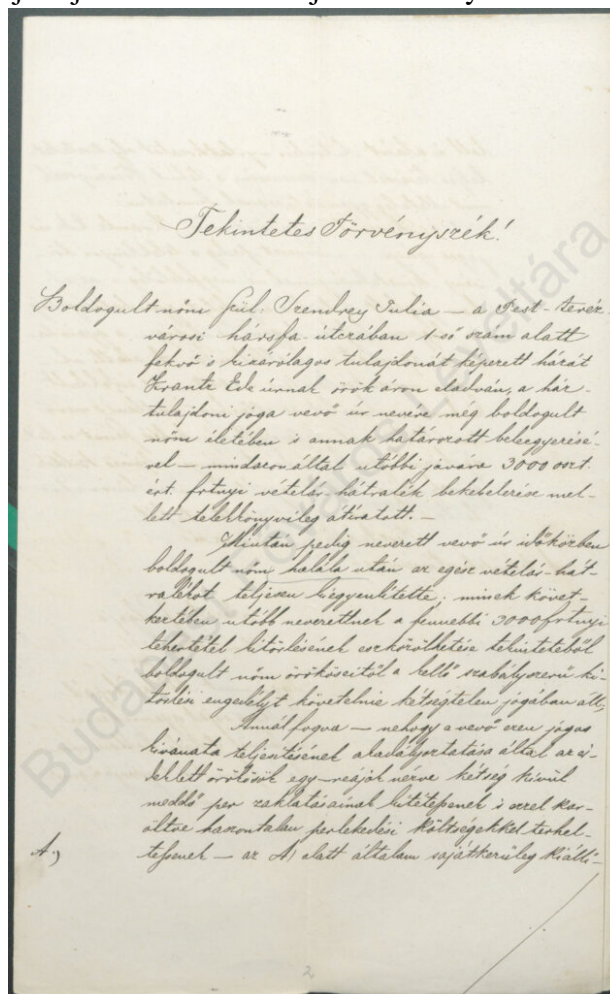 Tekintetes Törvényszék!
Boldogult nőm szül: Szendrey Julia — a Pest-teréz-
városi hársfa-útczában 1-ső szám alatt
fekvő s kizárólagos tulajdonát képezett házát
Ede úrnak örök áron eladván, a ház-
tulajdoni joga vevő úr nevére még boldogult
nőm életében s annak határozott beleegyezésé-
vel — mindazon által utóbbi javára 3000 oszt.
ért. frtnyi vételár hátralék bekebelezése mel-
lett telekkönyvileg átiratott. —
Miután pedig nevezett vevő úr időközben
boldogult nőm halála után az egész vételár-hát-
ralékot teljesen kiegyenlítette; minek követ-
keztében utóbb nevezettnek a fennebbi 3000 frtnyi
tehertétel kitörlésének eszközölhetése tekintetéből
boldogult nőm örököseitől a kellő szabályszerű ki-
törlési engedélyt követelnie kétségtelen jogában áll;
Annál fogva — nehogy a vevő ezen jogos
kívánata teljesítésének akadályoztatása által az é-
örökösök egy reájok nézve kétség kívül
meddő per zaklatásainak kitétessenek s ezzel kar-
öltve haszontalan perlekedési költségekkel terhel-
tessenek — az A) alatt általam sajátkezüleg kiállí-
A.)
2
Budapest Főváros Levéltára